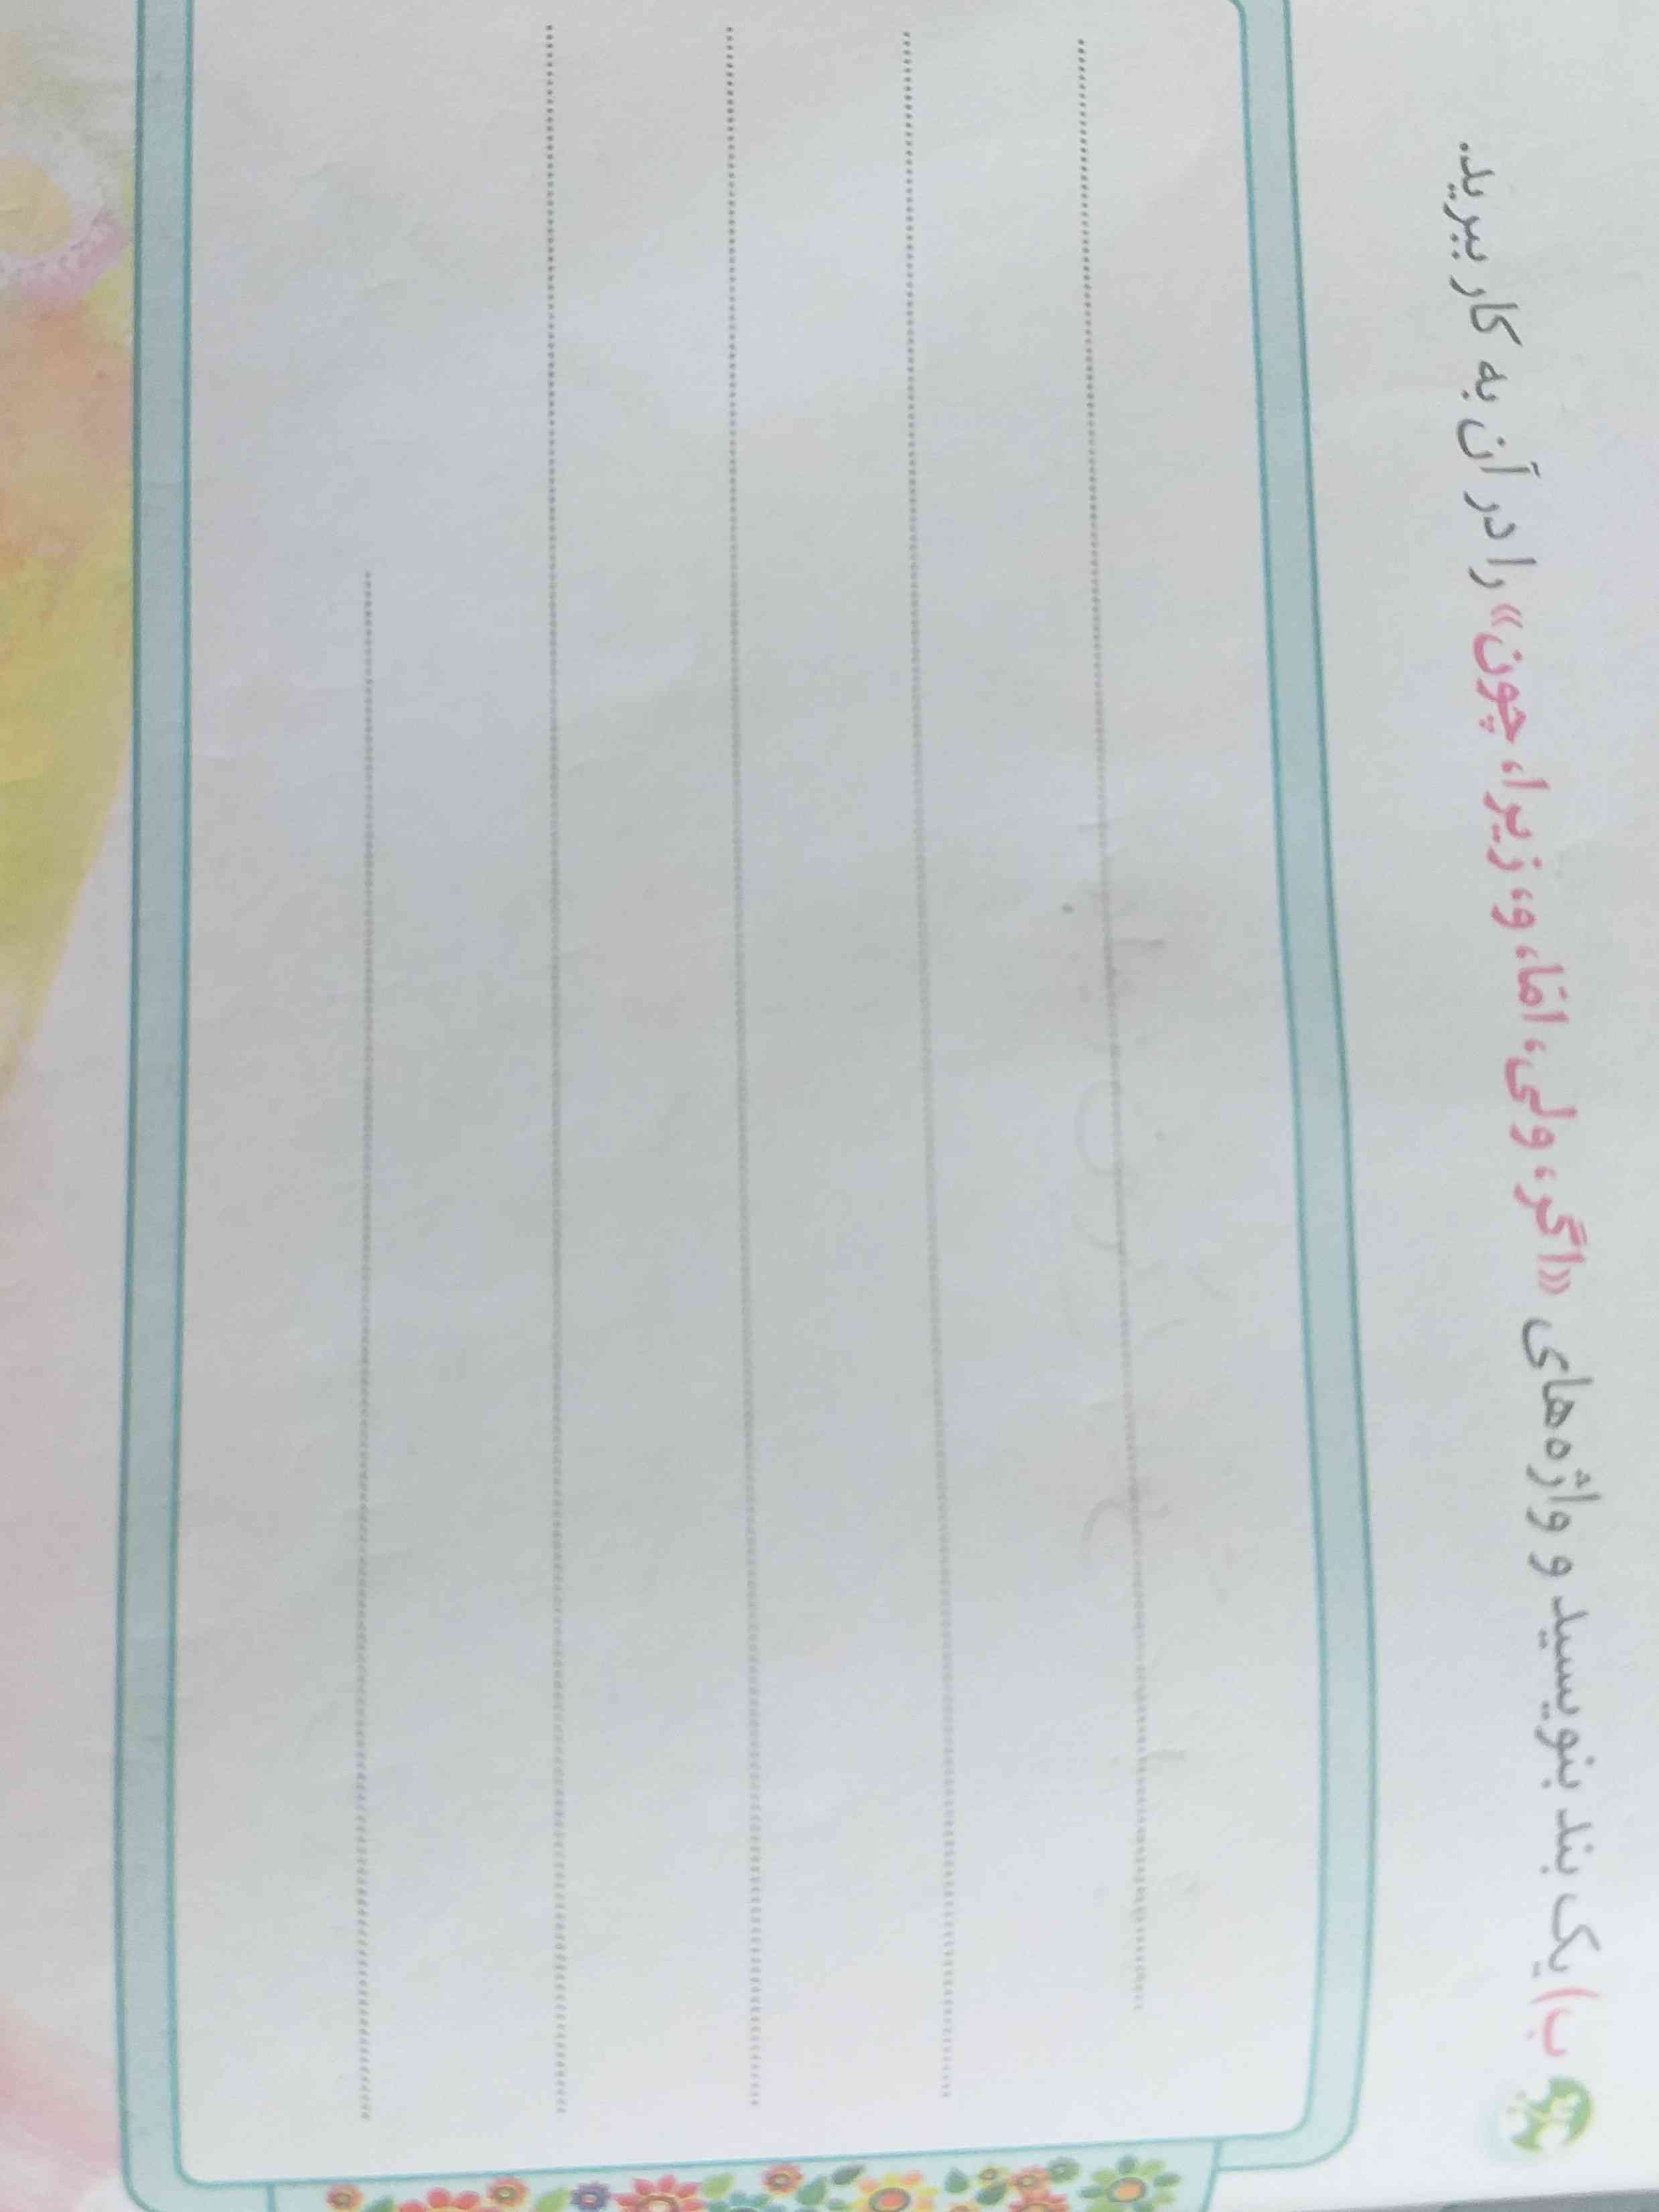 ب) یک بند بنویسید و واژه‌های «اگر، ولی، امّا، و، زیرا، چون» را در آن به کار ببرید.